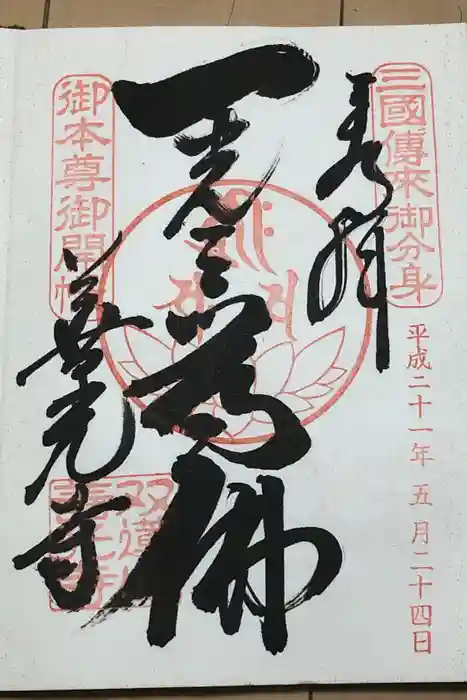 三國傳来御分身
奉拝
平成二十一年五月二十四日
一光三尊佛
御本尊御開帳
善光寺